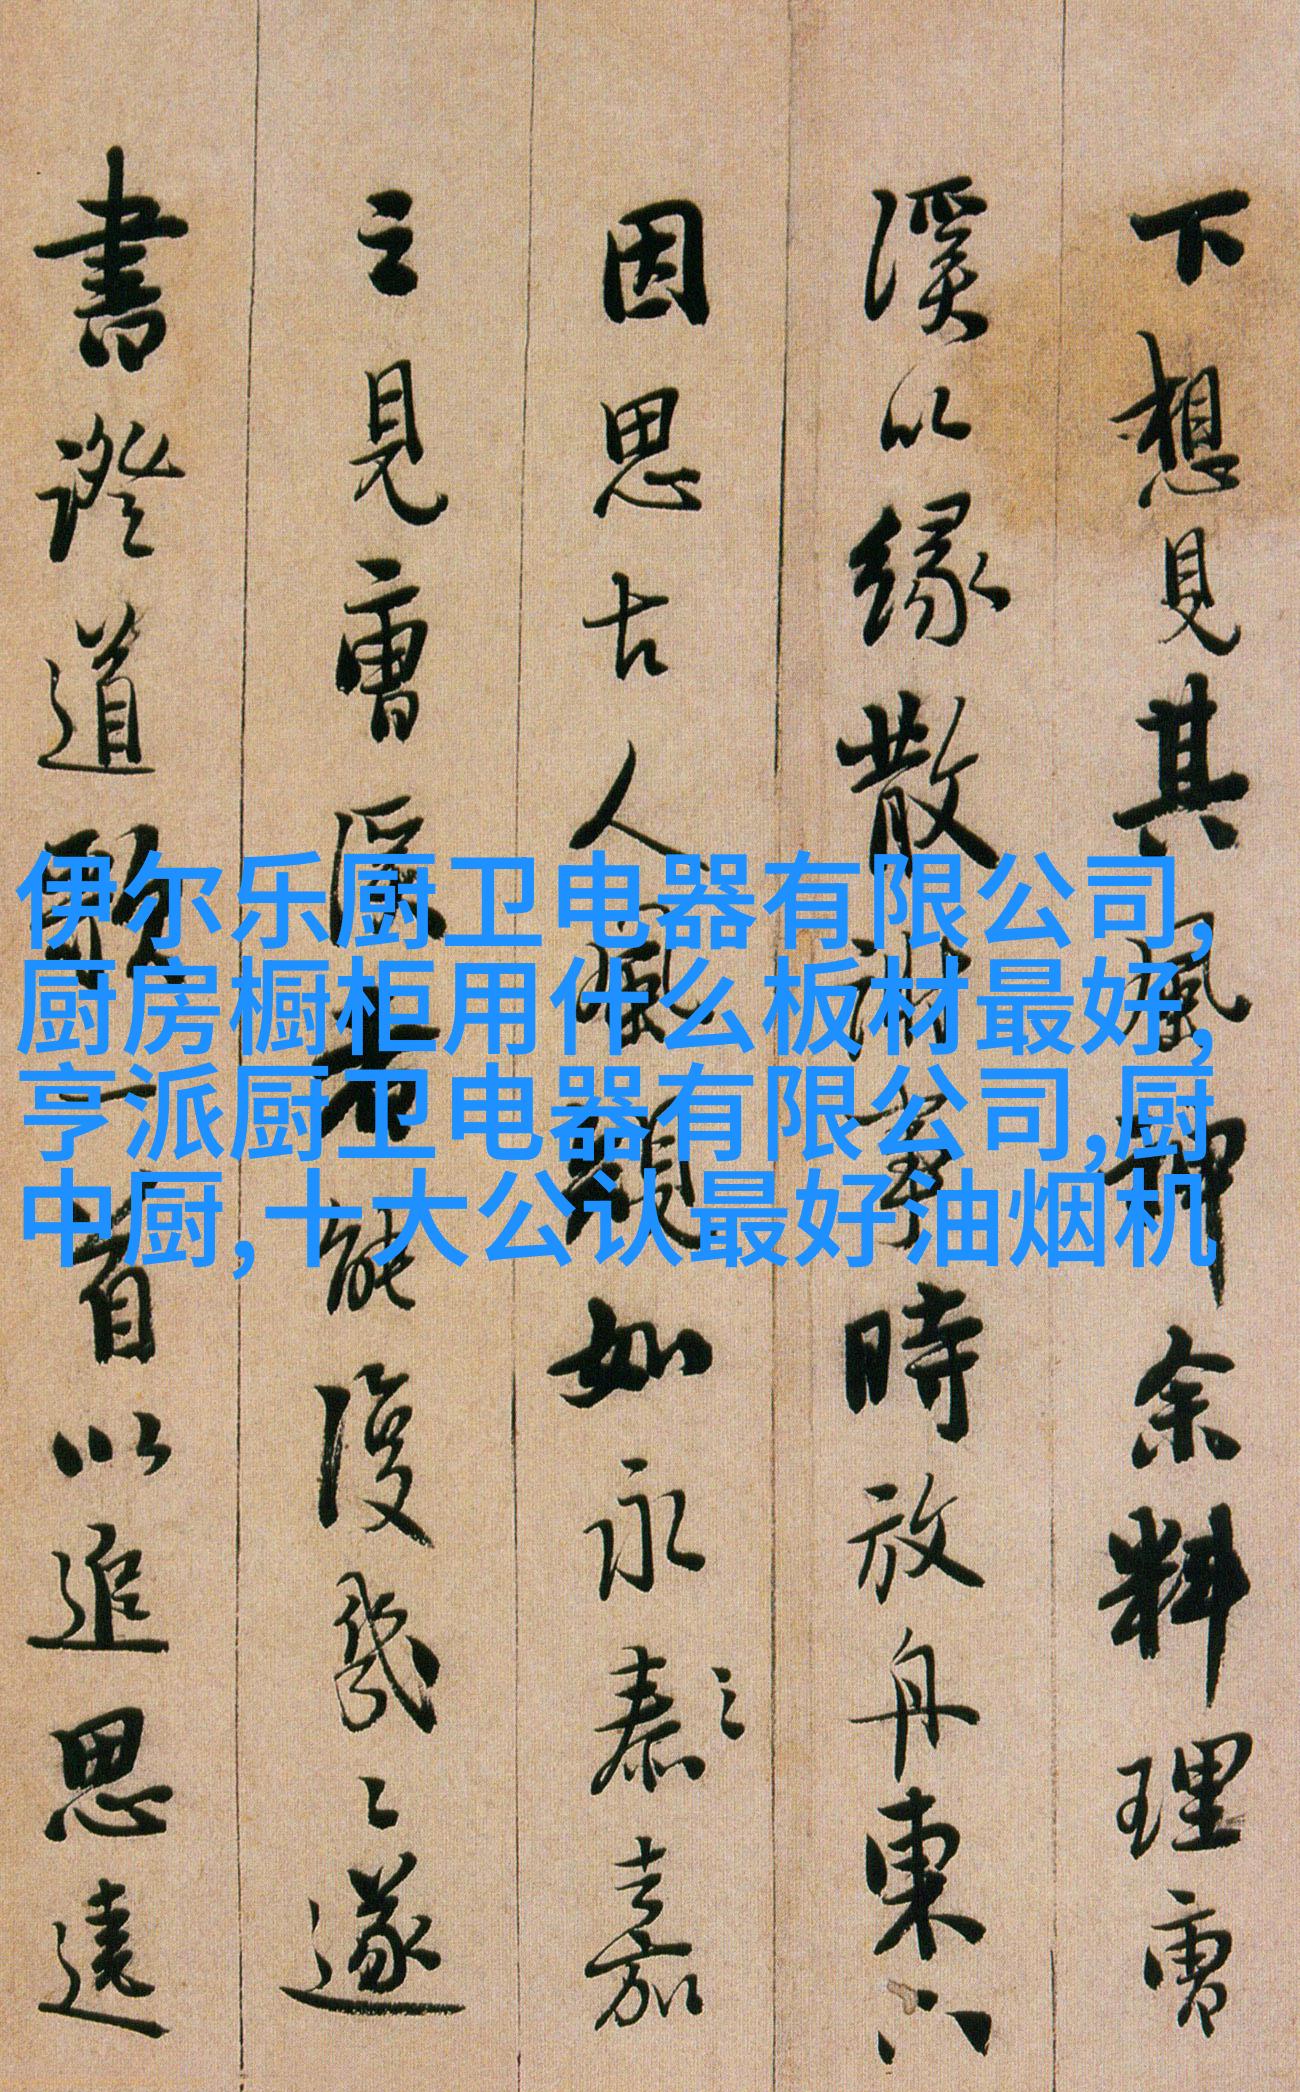 下想見其風神余料理曹
溪以緣散事時放舟東
因思古人風規如永泰之嘉
之見曹溪者能復幾〻遂
書證道歌一首以追思遠
伊尔乐厨卫电器有限公司,
厨房橱柜用什么板材最好,
亨派厨卫电器有限公司,厨
中厨,十大公认最好油烟机